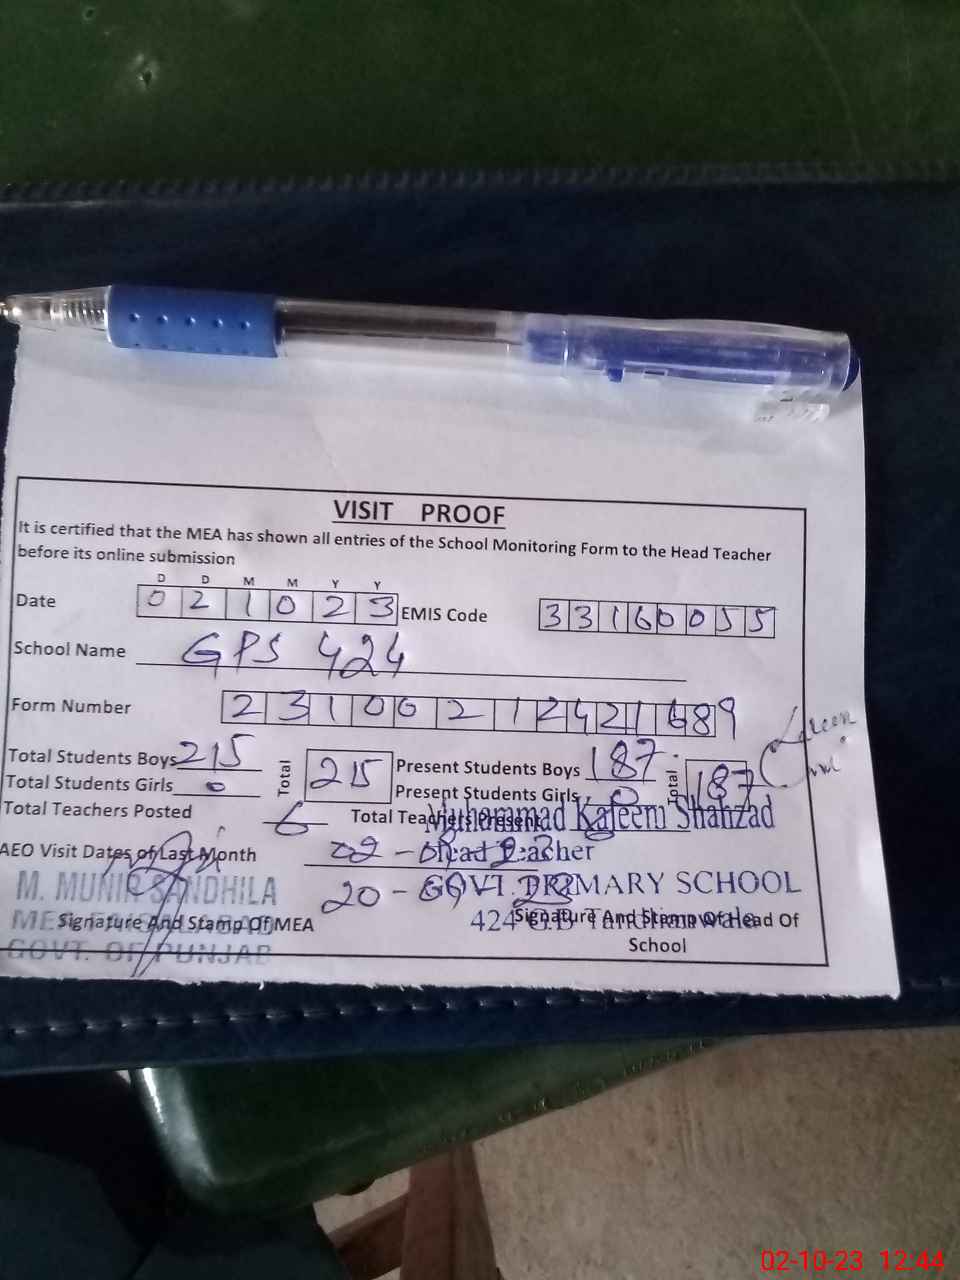 VISIT PROOF
It is certified that the MEA has shown all entries of the School Monitoring Form to the Head Teacher
before its online submission
D D M M Y Y
Date 0 2 1 0 2 3 EMIS Code 3 3 1 6 0 0 5 5
School Name GPS 424
Form Number 2 3 1 0 0 2 1 2 4 2 1 6 8 9
Total Students Boys 215 Total 215 Present Students Boys 187 Total 187
Total Students Girls 0 Present Students Girls 0
Total Teachers Posted 6 Total Teachers Present
Muhammad Kaleem Shahzad
AEO Visit Dates of Last Month
Head Teacher
M. MUNIR SANDHILA
GOVT. PRIMARY SCHOOL
Signature And Stamp Of MEA
424 G.B Tandlianwala
Signature And Stamp of Head Of
School
GOVT. OF PUNJAB
02-10-23 12:44